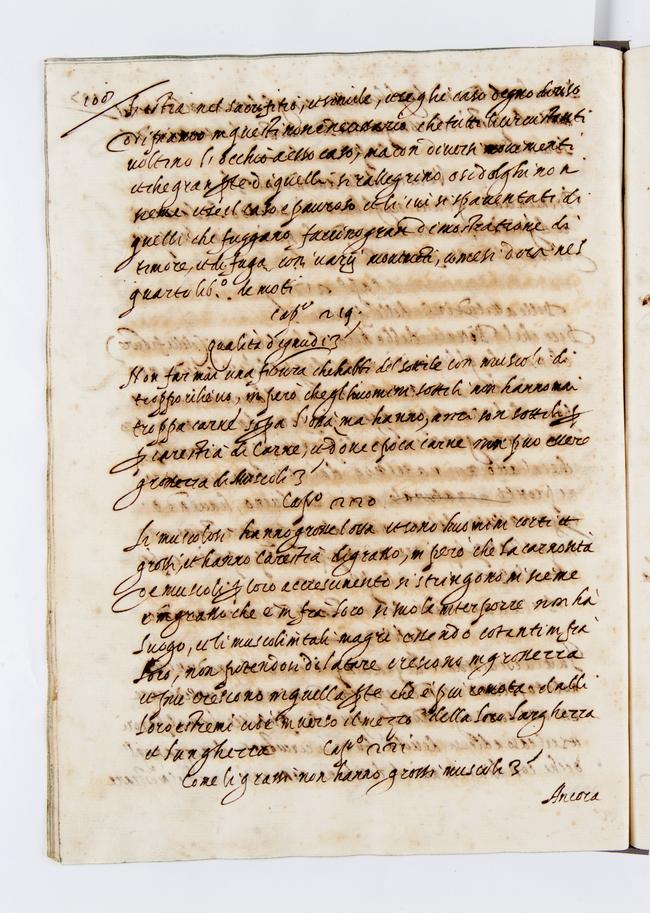 100
l'ostia nel sacrifitio, et simile, o seghi caso degno di riso
o di pianto in questi non è necessario che tutti li circunstanti
voltino li occhi a esso caso, ma con diversi movimenti
et che gran pte di quelli si rallegrino, o si dolghino in
sieme et se il caso è pauroso et li visi spaventati di
quelli che fuggano faccino gran dimostratione di
timore, et di fuga con varij movimti, come si dirà nel
quarto lib.º de moti
Capº 219.
Qualità d'ignudi 3
Non far mai una figura che habbi del sottile con muscoli di
troppo rilievo, in però che gl'huomini sottili non hanno mai
troppa carne sopa l'ossa, ma hanno, anzi son sottili p
p carestia di Carne, et dove è poca carne non puo essere
grossezza di Muscoli 3
Capº 220
Li muscolosi hanno grosse l'ossa et sono huomini corti et
grossi, et hanno carestia di grasso, in però che la carnosità
de muscoli p loro accrescimento si stringono insieme
e in grasso che è in fra loro si suole interporre non ha
luogo, et li muscoli in tali magri essendo costanti in fra
loro, non potendosi dilatare crescono in grossezza
et piu crescono in quella pte che è piu remota dalli
loro estremi cioè inverso il mezzo della loro larghezza
et lunghezza Capº 221
Come li grassi non hanno grossi muscoli 3
Ancora